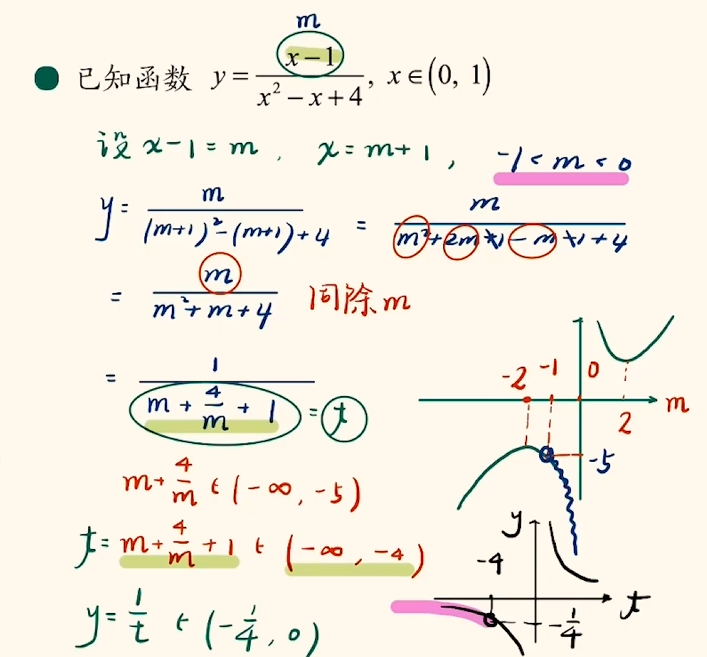 m
已知函数 y = (x-1)/(x²-x+4), x∈(0, 1)
设 x-1=m, x=m+1, -1<m<0
y= m/((m+1)²-(m+1)+4) = m/(m²+2m+1-m-1+4)
= m/(m²+m+4) 同除m
= 1/(m+4/m+1) = t
m+4/m ∈ (-∞, -5)
t= m+4/m+1 ∈ (-∞, -4)
y= 1/t ∈ (-1/4, 0)
-2 -1 0
m
2
-5
y
-4
t
-1/4